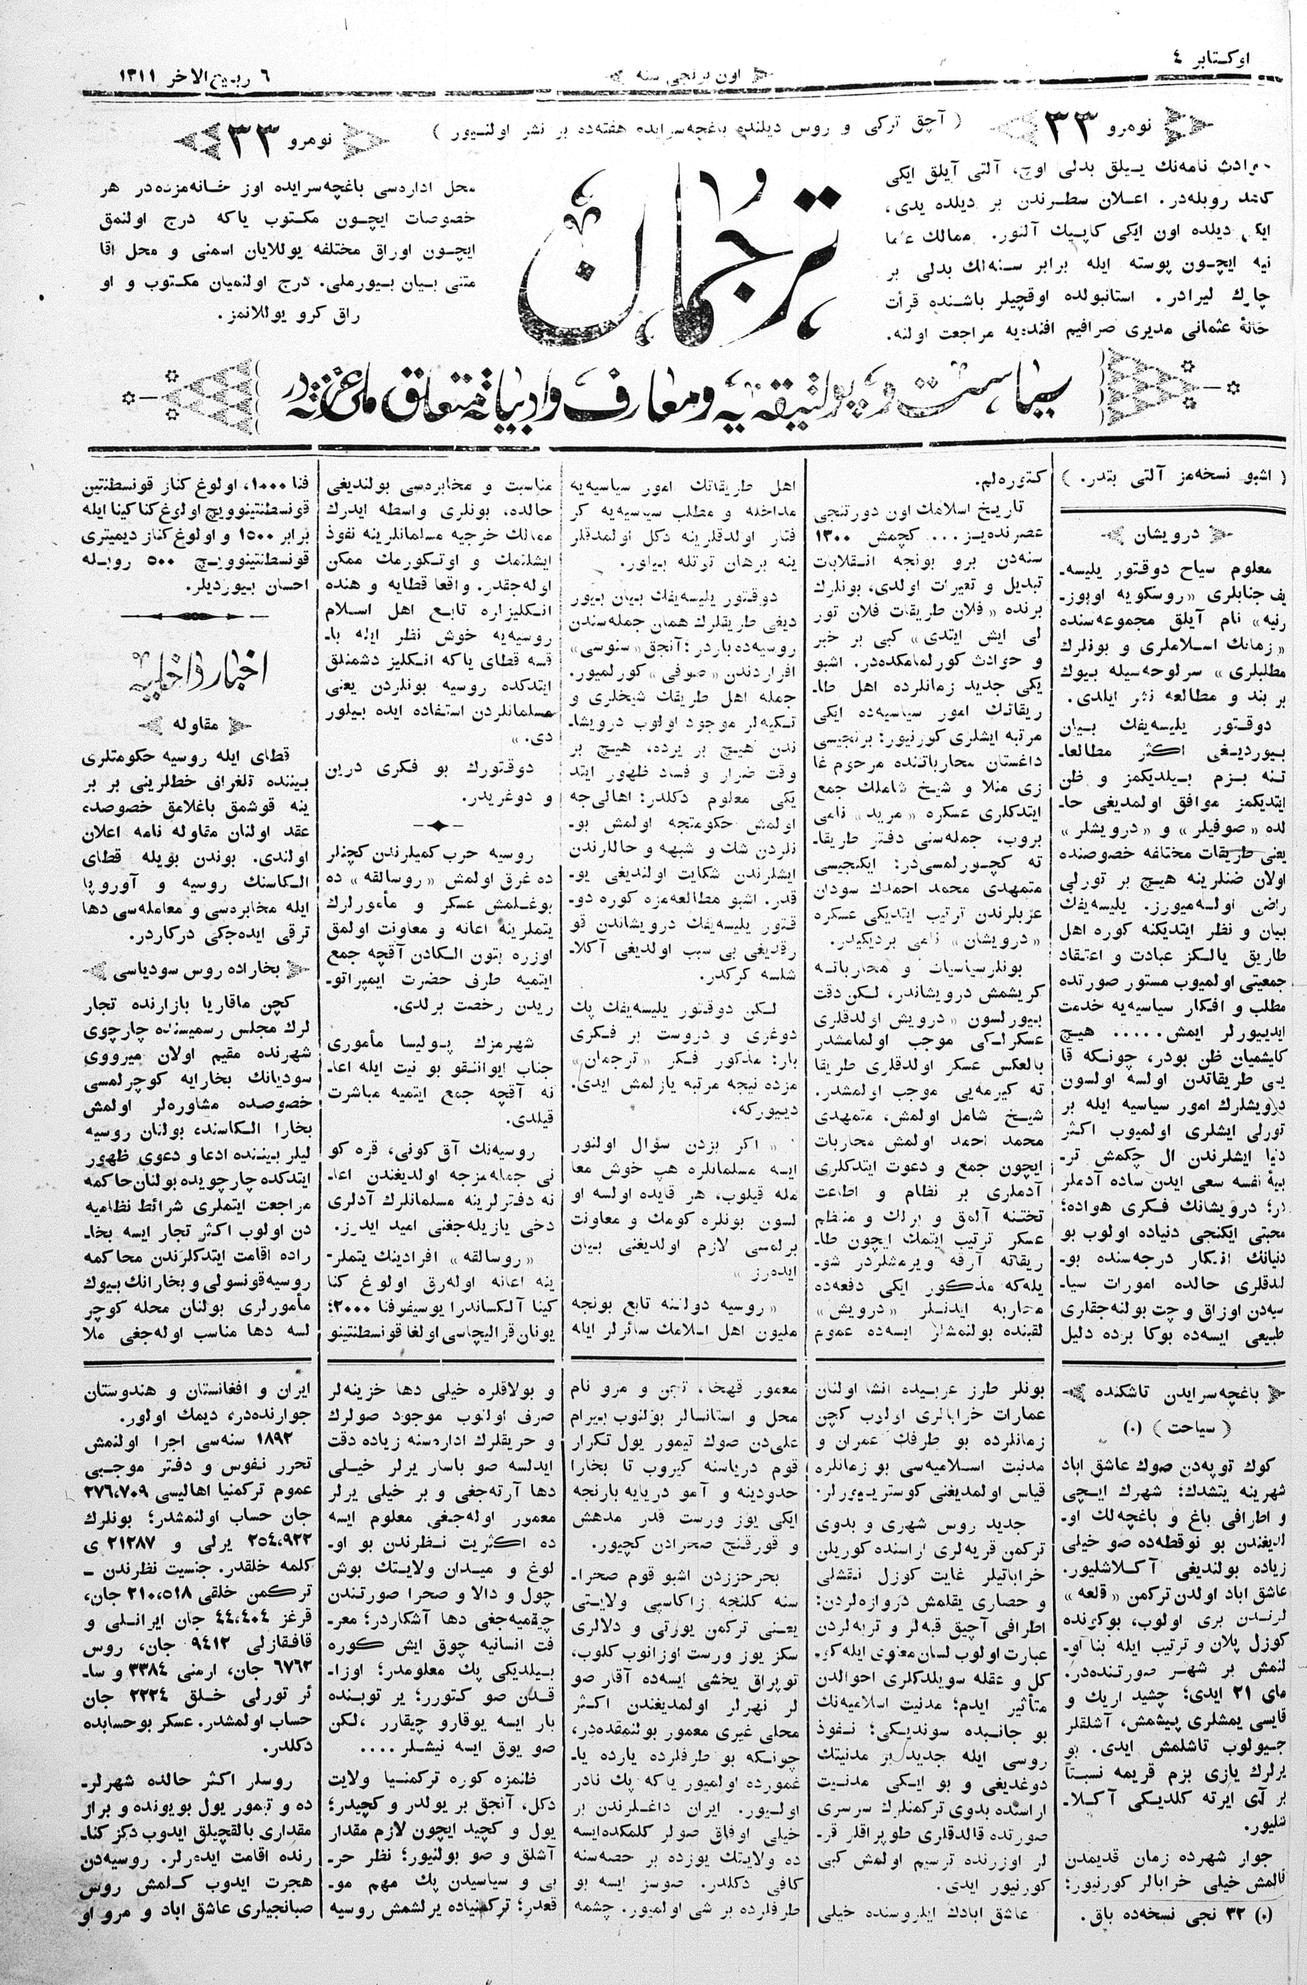 اوکتابر ٤
اون برنجی سنه
٦ ربیع الاخر ١٣١١
نومرو ٣٣
( آچق ترکی و روس دیلنده باغچه‌سرایده هفته‌ده بر نشر اولنیور )
نومرو ٣٣
حوادث نامه‌نك ییلق بدلی اوچ، آلتی آیلق ایکی
روبله‌در. اعلان سطرندن بر دیلده یدی،
ایکی دیلده اون ایکی کاپیك آلنور. ممالك عثما
نیه ایچون پوسته ایله برابر سنه‌لك بدلی بر
چارك لیرادر. استانبولده اوقچیلر باشنده قرأت
خانهٔ عثمانی مدیری صرافیم افندیه مراجعت اولنه.
ترجمان
محل اداره‌سی باغچه‌سرایده اوز خانه‌مزده‌در هر
خصوصات ایچون مکتوب یاکه درج اولنمق
ایچون اوراق مختلفه یوللایان اسمنی و محل اقا
متنی بیان بیورملی. درج اولنمیان مکتوب و او
راق کرو یوللانمز.
سیاست و پولتیقه‌یه و معارف و ادبیاته متعلق ملی غزته‌در
( اشبو نسخه‌مز آلتی بتدر. )
درویشان
معلوم سیاح دوقتور یلیسه‌ـ
یف جنابلری «روسکویه اوبوزـ
رنیه» نام آیلق مجموعه‌سنده
«زمانك اسلاملری و بونلرك
مطلبلری» سرلوحه‌سیله بیوك
بر بند و مطالعه نشر ایلدی.
دوقتور یلیسه‌یفك بیان
بیوردیغی اکثر مطالعاـ
تنه بزم بیلدیکمز و ظن
ایتدیکمز موافق اولمدیغی حاـ
لده «صوفیلر» و «درویشلر»
یعنی طریقات مختلفه خصوصنده
اولان ضنلرینه هیچ بر تورلی
راضی اوله‌میورز. یلیسه‌یفك
بیان و نظر ایتدیکنه کوره اهل
طاریق یالکز عبادت و اعتقاد
جمعیتی اولمیوب مستور صورتده
مطلب و افکار سیاسیه‌یه خدمت
ایدییورلر ایمش..... هیچ
کلیشمیان ظن بودر، چونکه قا
یی طریقاتدن اولسه اولسون
درویشلرك امور سیاسیه ایله بر
تورلی ایشلری اولمیوب اکثر
دنیا ایشلرندن ال چکمش ترـ
بیهٔ نفسه سعی ایدن ساده آدملر
در؛ درویشانك فکری هواده؛
محبتی ایکنجی دنیاده اولوب بو
دنیانك افکار درجه‌سنده بوـ
لندقلری حالده امورات سیاـ
سیه‌دن اوزاق و چت بولنه‌جقلری
طبیعی ایسه‌ده بوکا برده دلیل
کتوره‌لم.
تاریخ اسلامك اون دورتنجی
عصرنده‌یز... کچمش ١٣٠٠
سنه‌دن برو بونجه انقلابات
تبدیل و تغیرات اولدی، بونلرك
برنده «فلان طریقات فلان تور
لی ایش ایتدی» کبی بر خبر
و حوادث کورلمامکده‌در. اشبو
یکی جدید زمانلرده اهل طاـ
ریقاتك امور سیاسیه‌ده ایکی
مرتبه ایشلری کورنیور: برنجیسی
داغستان محارباتنده مرحوم غا
زی منلا و شیخ شاملك جمع
ایتدکلری عسکره «مرید» نامی
بروب، جمله‌سنی دفتر طریقاـ
ته کچورلمسی‌در: ایکنجیسی
متمهدی محمد احمدك سودان
عربلرندن ترتیب ایتدیکی عسکره
«درویشان» نامی بردیکیدر.
بونلر سیاسیات و محارباته
کریشمش درویشاندر، لکن دقت
بیورلسون «درویش اولدقلری
عسکرلکی موجب اولمامشدر
بالعکس عسکر اولدقلری طریقا
ته کیرمه‌یی موجب اولمشدر.
شیخ شامل اولمش، متمهدی
محمد احمد اولمش محاربات
ایچون جمع و دعوت ایتدکلری
آدملری بر نظام و اطاعت
تختنه آلمق و برلك و منظم
عسکر ترتیب ایتمك ایچون طاـ
ریقاته آرقه ویرمشلردر شوـ
یله‌که مذکور ایکی دفعه‌ده
محاربه ایدنلر «درویش»
لقبنده بولنمشلر ایسه‌ده عموم
اهل طریقاتك امور سیاسیه‌یه
مداخله و مطلب سیاسیه‌یه کر
فتار اولدقلرینه دکل اولمدقلر
ینه برهان توتله بیلور.
دوقتور یلیسه‌یفك بیان بیور
دیغی طریقلرك همان جمله‌سندن
روسیه‌ده باردر؛ آنجق «سنوسی»
افرادندن «صوفی» کورلمیور.
جمله اهل طریقات شیخلری و
تکیه‌لر موجود اولوب درویشاـ
ندن هیچ بر یرده، هیچ بر
وقت ضرار و فساد ظهور ایتد
یکی معلوم دکلدر: اهالی‌جه
اولمش حکومتجه اولمش بوـ
نلردن شك و شبهه و حاللرندن
ایشلرندن شکایت اولندیغی یوـ
قدر. اشبو مطالعه‌مزه کوره دوـ
قتور یلیسه‌یفك درویشاندن قو
رقدیغی بی سبب اولدیغی آکلا
شلسه کرکدر.
لکن دوقتور یلیسه‌یفك پك
دوغری و دروست بر فکری
بار: مذکور فکر «ترجمان»
مزده نیجه مرتبه یازلمش ایدی.
دیییورکه،
« اکر بزدن سؤال اولنور
ایسه مسلمانلره هپ خوش معا
مله قیلوب، هر قایده اولسه او
لسون بونلره کومك و معاونت
برلمسی لازم اولدیغنی بیان
ایده‌رز »
« روسیه دولتنه تابع بونجه
ملیون اهل اسلامك سائرلر ایله
مناسبت و مخابره‌سی بولندیغی
حالده، بونلری واسطه ایدرك
ممالك خرجیه مسلمانلرینه نفوذ
ایشلتمك و اوتکورمك ممکن
اوله‌جقدر. واقعا قطایه و هنده
انکلیزلره تابع اهل اسلام
روسیه‌یه خوش نظر ایله باـ
قسه قطای یاکه انکلیز دشمنلق
ایتدکده روسیه بونلردن یعنی
مسلمانلردن استفاده ایده بیلور
دی. »
دوقتورك بو فکری درین
و دوغریدر.
روسیه حرب کمیلرندن کچنلر
ده غرق اولمش «روسالقه» ده
بوغلمش عسکر و مأمورلرك
یتملرینه اعانه و معاونت اولمق
اوزره بتون الکادن آقچه جمع
ایتمیه طرف حضرت ایمپراتوـ
ریدن رخصت برلدی.
شهرمزك پولیسا مأموری
جناب ایوانقو بو نیت ایله اعاـ
نه آقچه جمع ایتمیه مباشرت
قیلدی.
روسیه‌نك آق کونی، قره کو
نی جمله‌مزجه اولدیغندن اعاـ
نه دفترلرینه مسلمانلرك آدلری
دخی یازیله‌جغنی امید ایدرز.
«روسالقه» افرادینك یتملرـ
ینه اعانه اوله‌رق اولوغ کنا
کینا آلکساندرا یوسیفوفنا ٢٠٠٠؛
یونان قرالیچاسی اولغا قونسطنتینو
فنا ١٠٠٠، اولوغ کناز قونسطنتین
قونسطنتینوویچ اولوغ کناکینا ایله
برابر ١٥٠٠ و اولوغ کناز دیمیتری
قونسطنتینوویچ ٥٠٠ روبله
احسان بیوردیلر.
اخبار داخلیه
مقاوله
قطای ایله روسیه حکومتلری
بیننده تلغراف خطلرینی بر بر
ینه قوشمق باغلامق خصوصده،
عقد اولنان مقاوله نامه اعلان
اولندی. بوندن بویله قطای
الکاسنك روسیه و آوروپا
ایله مخابره‌سی و معامله‌سی دها
ترقی ایده‌جکی درکاردر.
بخاراده روس سودیاسی
کچن ماقاریا بازارنده تجار
لرك مجلس رسمیسنده چارجوی
شهرنده مقیم اولان میرووی
سودیانك بخارایه کوچرلمسی
خصوصده مشاوره‌لر اولمش
بخارا الکاسنده، بولنان روسیه
لیلر بیننده ادعا و دعوی ظهور
ایتدکده چارجویده بولنان حاکمه
مراجعت ایتملری شرائط نظامیه
دن اولوب اکثر تجار ایسه بخاـ
راده اقامت ایتدکلرندن محاکمه
روسیه قونسولی و بخارانك بیوك
مأمورلری بولنان محله کوچر
لسه دها مناسب اوله‌جغی ملا
باغچه‌سرایدن تاشکنده
( سیاحت ) (٠)
کوك توپه‌دن صوك عاشق اباد
شهرینه یتشدك؛ شهرك ایچی
و اطرافی باغ و باغچه‌لك اوـ
لدیغندن بو نوقطه‌ده صو خیلی
زیاده بولندیغی آکلاشلیور.
عاشق اباد اولدن ترکمن «قلعه»
لرندن بری اولوب، بوکونده
کوزل پلان و ترتیب ایله بنا اوـ
لنمش بر شهر صورتنده‌در.
مای ٢١ ایدی؛ چشید اریك و
قایسی یمشلری پیشمش، آشلقلر
جیولوب تاشلمش ایدی. بو
یرلرك یازی بزم قریمه نسبتاً
بر آی ایرته کلدیکی آکلاـ
شلیور.
جوار شهرده زمان قدیمدن
قالمش خیلی خرابالر کورنیور:
(٠) ٣٢ نجی نسخه‌ده باق.
بونلر طرز عربیده انشا اولنان
عمارات خرابالری اولوب کچن
زمانلرده بو طرفك عمران و
مدنیت اسلامیه‌سی بو زمانلره
قیاس اولمدیغنی کوستریورلر.
جدید روس شهری و بدوی
ترکمن قریه‌لری اراسنده کوریلن
خراباتیلر غایت کوزل نقشلی
و حصاری یقلمش دروازه‌لردن؛
اطرافی آچیق قبه‌لر و تربه‌لردن
عبارت اولوب لسان معنوی ایله کوـ
کل و عقله سویلدکلری احوالدن
متأثیر ایدم؛ مدنیت اسلامیه‌نك
بو جانبده سوندیکی؛ نفوذ
روسی ایله جدید بر مدنیتك
دوغدیغی و بو ایکی مدنیت
اراسنده بدوی ترکمنلرك سرسری
صورتده قالدقلری طوپراقلر قرـ
لر اوزرنده ترسیم اولمش کبی
کورنیور ایدی.
عاشق ابادك ایلروسنده خیلی
معمور قهخا، تجن و مرو نام
محل و استانسالر بولنوب بیرام
علی‌دن صوك تیمور یول تکرار
قوم دریاسنه کیروب تا بخارا
حدودینه و آمو دریایه بارنجه
ایکی یوز ورست قدر مدهش
و قورقنج صحرادن کچیور.
بحرحزردن اشبو قوم صحراـ
سنه کلنجه زاکاسپی ولایتی
یعنی ترکمن یورتی و دلالری
سکز یوز ورست اوزانوب کلوب،
توپراق یخشی ایسه‌ده آقار صو
لر نهرلر اولمدیغندن اکثر
محلی غیری معمور بولنمقده‌در،
چونکه بو طرفلرده یارده یاـ
غمورده اولمیور یاکه پك نادر
اولیور. ایران داغلرندن بر
خیلی اوفاق صولر کلمکده‌ایسه
ده ولایتك یوزده بر حصه‌سنه
کافی دکلدر. صوسز ایسه بو
طرفلرده بر شی اولمیور. چشمه
و بولاقلره خیلی دها خزینه‌لر
صرف اولنوب موجود صولرك
و حریقلرك اداره‌سنه زیاده دقت
ایدلسه صو باسار یرلر خیلی
دها آرته‌جغی و بر خیلی یرلر
معمور اوله‌جغی معلوم ایسه
ده اکثریت نظرندن بو اوـ
لوغ و میدان ولایتك بوش
چول و دالا و صحرا صورتندن
چیقمیه‌جغی دها آشکاردر؛ معرـ
فت انسانیه چوق ایش کوره
بیلدیکی پك معلومدر؛ اوزاـ
قدن صو کتورر؛ یر توبنده
بار ایسه یوقارو چیقارر ،لکن
صو یوق ایسه نیشلر....
ظنمزه کوره ترکمنیا ولایت
دکل، آنجق بر یولدر و کچیدر؛
یول و کچید ایچون لازم مقدار
آشلق و صو بولنیور؛ نظر حرـ
بی و سیاسیدن پك مهم موـ
قعدر؛ ترکمنیاده یرلشمش روسیه
ایران و افغانستان و هندوستان
جوارنده‌در، دیمك اولور.
١٨٩٢ سنه‌سی اجرا اولنمش
تحرر نفوس و دفتر موجبی
عموم ترکمنیا اهالیسی ٢٧٦،٧٠٩
جان حساب اولنمشدر؛ بونلرك
٢٥٤،٩٢٢ یرلی و ٢١٢٨٧ ی
کلمه خلقدر. جنسیت نظرندن ـ
ترکمن خلقی ٢١٠،٥١٨ جان،
قرغز ٤٤،٤٠٤ جان ایرانلی و
قافقازلی ٩٤١٢ جان، روس
٦٧٦٢ جان، ارمنی ٣٣٨٤ و ساـ
ئر تورلی خلق ٢٢٢٤ جان
حساب اولمشدر. عسکر بوحسابده
دکلدر.
روسلر اکثر حالده شهرلرـ
ده و تیمور یول بویونده و براز
مقداری بالقچیلق ایدوب دکز کناـ
رنده اقامت ایده‌رلر. روسیه‌دن
هجرت ایدوب کلمش روس
صبانجیلری عاشق اباد و مرو او